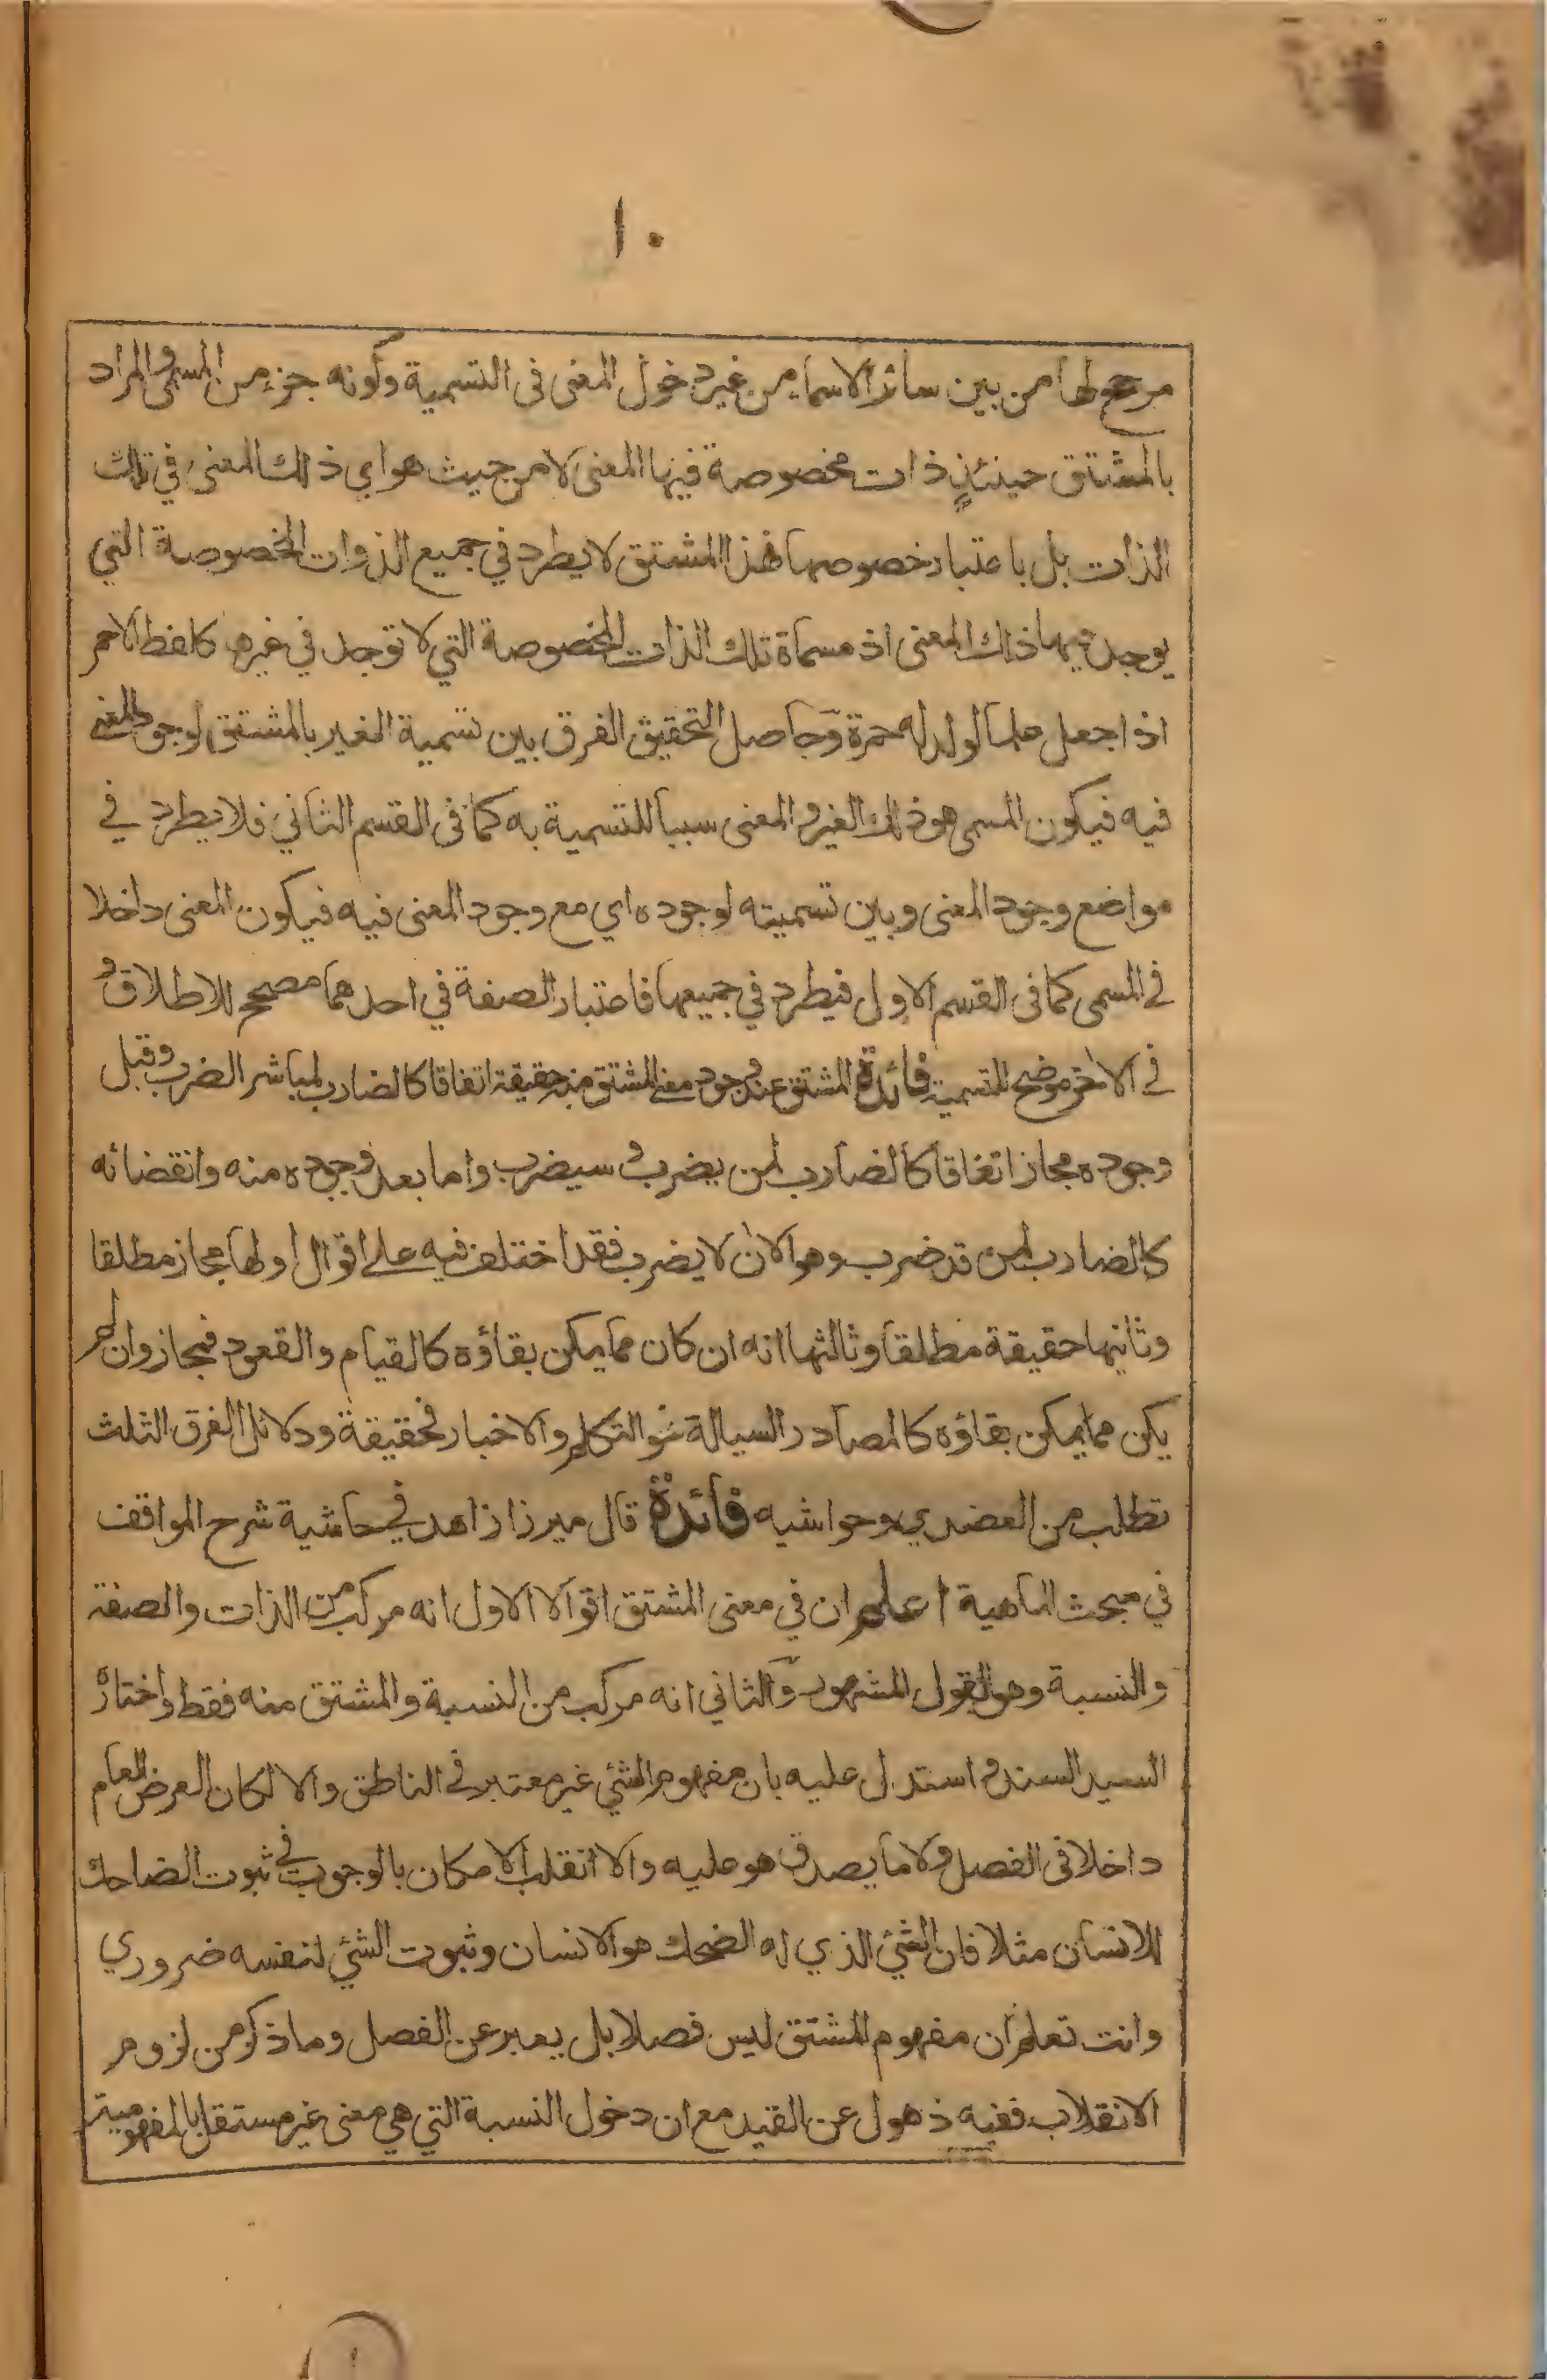 ١٠
مرجح لها من بين سائر الاسماء من غير دخول المعنى فى التسمية وكونه جزء من المسمى والمراد
بالمشتق حينئذٍ ذات مخصوصة فيها المعنى لا من حيث هو اي ذلك المعنى في تلك
الذات بل باعتبار خصوصها فهذا المشتق لا يطرد في جميع الذوات المخصوصة التي
يوجد فيها ذلك المعنى اذ مسماة تلك الذات المخصوصة التي لا توجد في غيرها كلفظ الاحمر
اذا جعل علما لولد له حمرة وحاصل التحقيق الفرق بين تسمية الغير بالمشتق لوجود المعنى
فيه فيكون المسمى هو ذلك الغير والمعنى سببا للتسمية به كما في القسم الثاني فلا يطرد في
مواضع وجود المعنى وبين تسميته لوجوده اي مع وجود المعنى فيه فيكون المعنى داخلا
في المسمى كما فى القسم الاول فيطرد في جميعها فاعتبار الصفة في احدهما مصحح للاطلاق و
في الاخر موضح للتسمية فائدة المشتق عند وجود معنى المشتق منه حقيقة اتفاقا كالضارب لمباشر الضرب وقبل
وجوده مجاز اتفاقا كالضارب لمن يضرب و سيضرب واما بعد وجوده منه وانقضائه
كالضارب لمن قد ضرب وهو الان لا يضرب فقد اختلف فيه على اقوال اولها مجاز مطلقا
وثانيها حقيقة مطلقا وثالثها انه ان كان مما يمكن بقاؤه كالقيام والقعود فمجاز وان لم
يكن مما يمكن بقاؤه كالمصادر السيالة نحو التكلم والاخبار فحقيقة ودلائل الفرق الثلث
تطلب من العضدي وحواشيه فائدة قال ميرزا زاهد في حاشية شرح المواقف
في مبحث الماهية اعلم ان في معنى المشتق اقوالا الاول انه مركب من الذات والصفة
والنسبة وهو القول المشهور والثاني انه مركب من النسبة والمشتق منه فقط واختاره
السيد السند و استدل عليه بان مفهوم الشئ غير معتبر في الناطق والا لكان العرض العام
داخلا فى الفصل ولا ما يصدق هو عليه والا انقلب الامكان بالوجوب في ثبوت الضاحك
للانسان مثلا فان الشئ الذي له الضحك هو الانسان وثبوت الشئ لنفسه ضروري
وانت تعلم ان مفهوم المشتق ليس فصلا بل يعبر عن الفصل وما ذكر من لزوم
الانقلاب ففيه ذهول عن القيد مع ان دخول النسبة التي هي معنى غير مستقل بالمفهومية